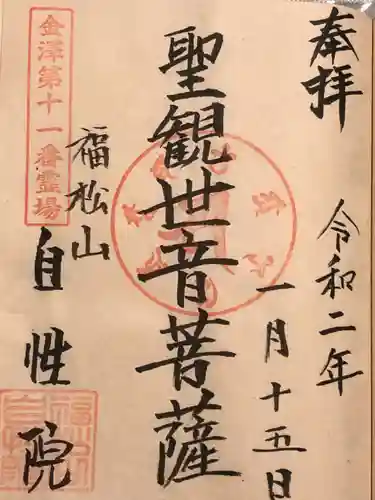 奉拝
令和二年
一月十五日
聖観世音菩薩
金澤第十一番霊場
福松山
自性院